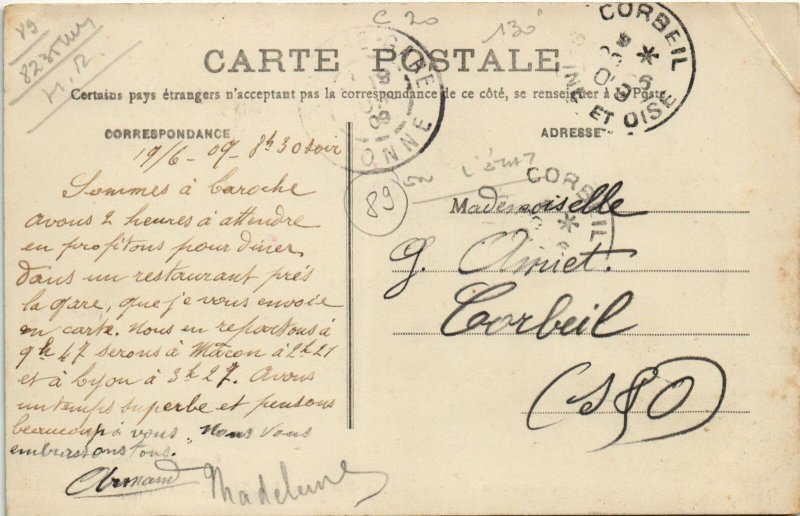 89
H.R.
C 20
130
CARTE POSTALE
Certains pays étrangers n'acceptant pas la correspondance de ce côté, se renseigner à la Poste
CORRESPONDANCE
19/6-09-8h30 soir
Sommes à Laroche
avons 2 heures à attendre
en profitons pour diner
dans un restaurant près
la gare, que je vous envoie
en carte. Nous en repartons à
9h47 serons à Mâcon à 2h21
et à Lyon à 3h27. Avons
un temps superbe et pensons
beaucoup à vous. Nous vous
embrassons tous.
Armand
Madeleine
YONNE
89
ADRESSE
Mademoiselle
G. Amiet.
Corbeil
(S&O)
CORBEIL
SEINE ET OISE
CORBEIL